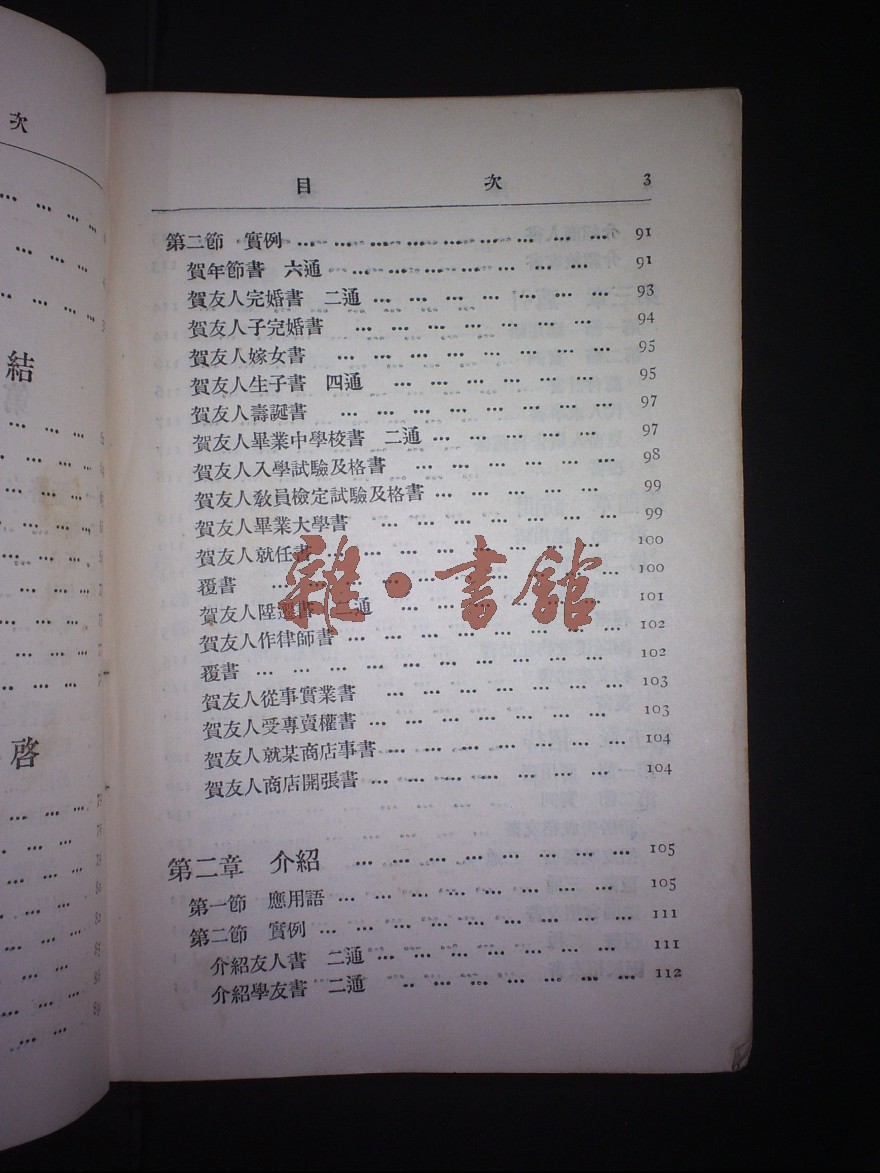 次
結
啓
目 次 3
第二節 實例 … … … … … … … … … … 91
賀年節書 六通 … … … … … … … … 91
賀友人完婚書 二通 … … … … … … … 93
賀友人子完婚書 … … … … … … … … 94
賀友人嫁女書 … … … … … … … … 95
賀友人生子書 四通 … … … … … … … 95
賀友人壽誕書 … … … … … … … … 97
賀友人畢業中學校書 二通 … … … … … 97
賀友人入學試驗及格書 … … … … … … 98
賀友人敎員檢定試驗及格書 … … … … … 99
賀友人畢業大學書 … … … … … … … 99
賀友人就任書 … … … … … … … … 100
覆書 … … … … … … … … … … 100
賀友人陞遷書 二通 … … … … … … 101
賀友人作律師書 … … … … … … … 102
覆書 … … … … … … … … … … 102
賀友人從事實業書 … … … … … … … 103
賀友人受專賣權書 … … … … … … … 103
賀友人就某商店事書 … … … … … … 104
賀友人商店開張書 … … … … … … … 104
第二章 介紹 … … … … … … … … 105
第一節 應用語 … … … … … … … … 105
第二節 實例 … … … … … … … … … 111
介紹友人書 二通 … … … … … … … 111
介紹學友書 二通 … … … … … … … 112
雜·書館